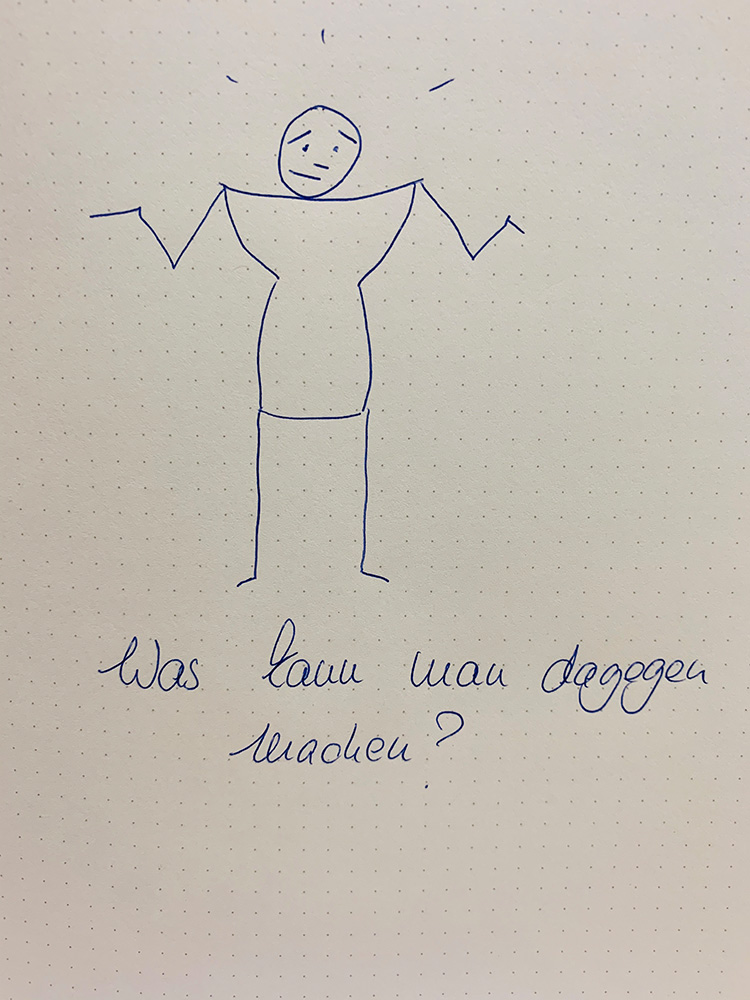 Was kann man dagegen
machen?